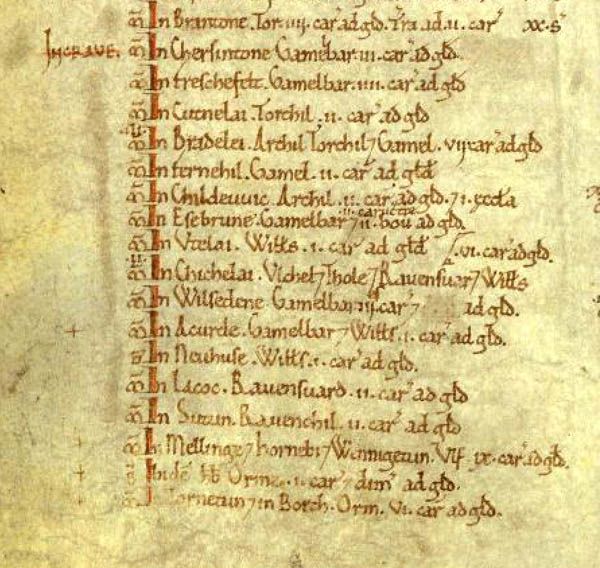 In Brantone. Tor. iiij. car' ad gld. Tra ad. ii. car' xx. s'
IN CRAVE. ɱ In Chersintone. Gamelbar. iii. car' ad gld.
ɱ In Freschefelt. Gamelbar. iiii. car' ad gld
ɱ In Cutnelai. Torchil. ii. car' ad gld
ɱ In Bradelei. Archil Torchil ⁊ Gamel. vii car' ad gld
ɱ In fernehil. Gamel. ii. car' ad gld
ɱ In Childeuuic. Archil. ii. car' ad gld. ⁊ i. æccła
ɱ In Esebrune. Gamelbar ii. bou ad gld.
ɱ In Vtelai. Wiłłs. i. car' ad gld
vi. car' ad gld.
ɱ In Chichelai. Vlchel ⁊ Thole ⁊ Rauensuar ⁊ Wiłłs
ɱ In Wilsedene. Gamelbar iii. car' ⁊ ad gld.
ɱ In Acurde. Gamelbar ⁊ Wiłłs. i. car' ad gld.
ɱ In Neuhuse. Wiłłs. i. car' ad gld.
ɱ In Lacoc. Rauensuard. ii. car' ad gld
ɱ In Sutun. Rauenchil. ii. car' ad gld
ɱ In Mellinge ⁊ hornebi ⁊ Wenningetun. Vlf. ix. car' ad gld.
Ibidē hb Orme. i. car' ⁊ dim' ad gld.
⁊ in Borch. Orm. vi. car' ad gld.